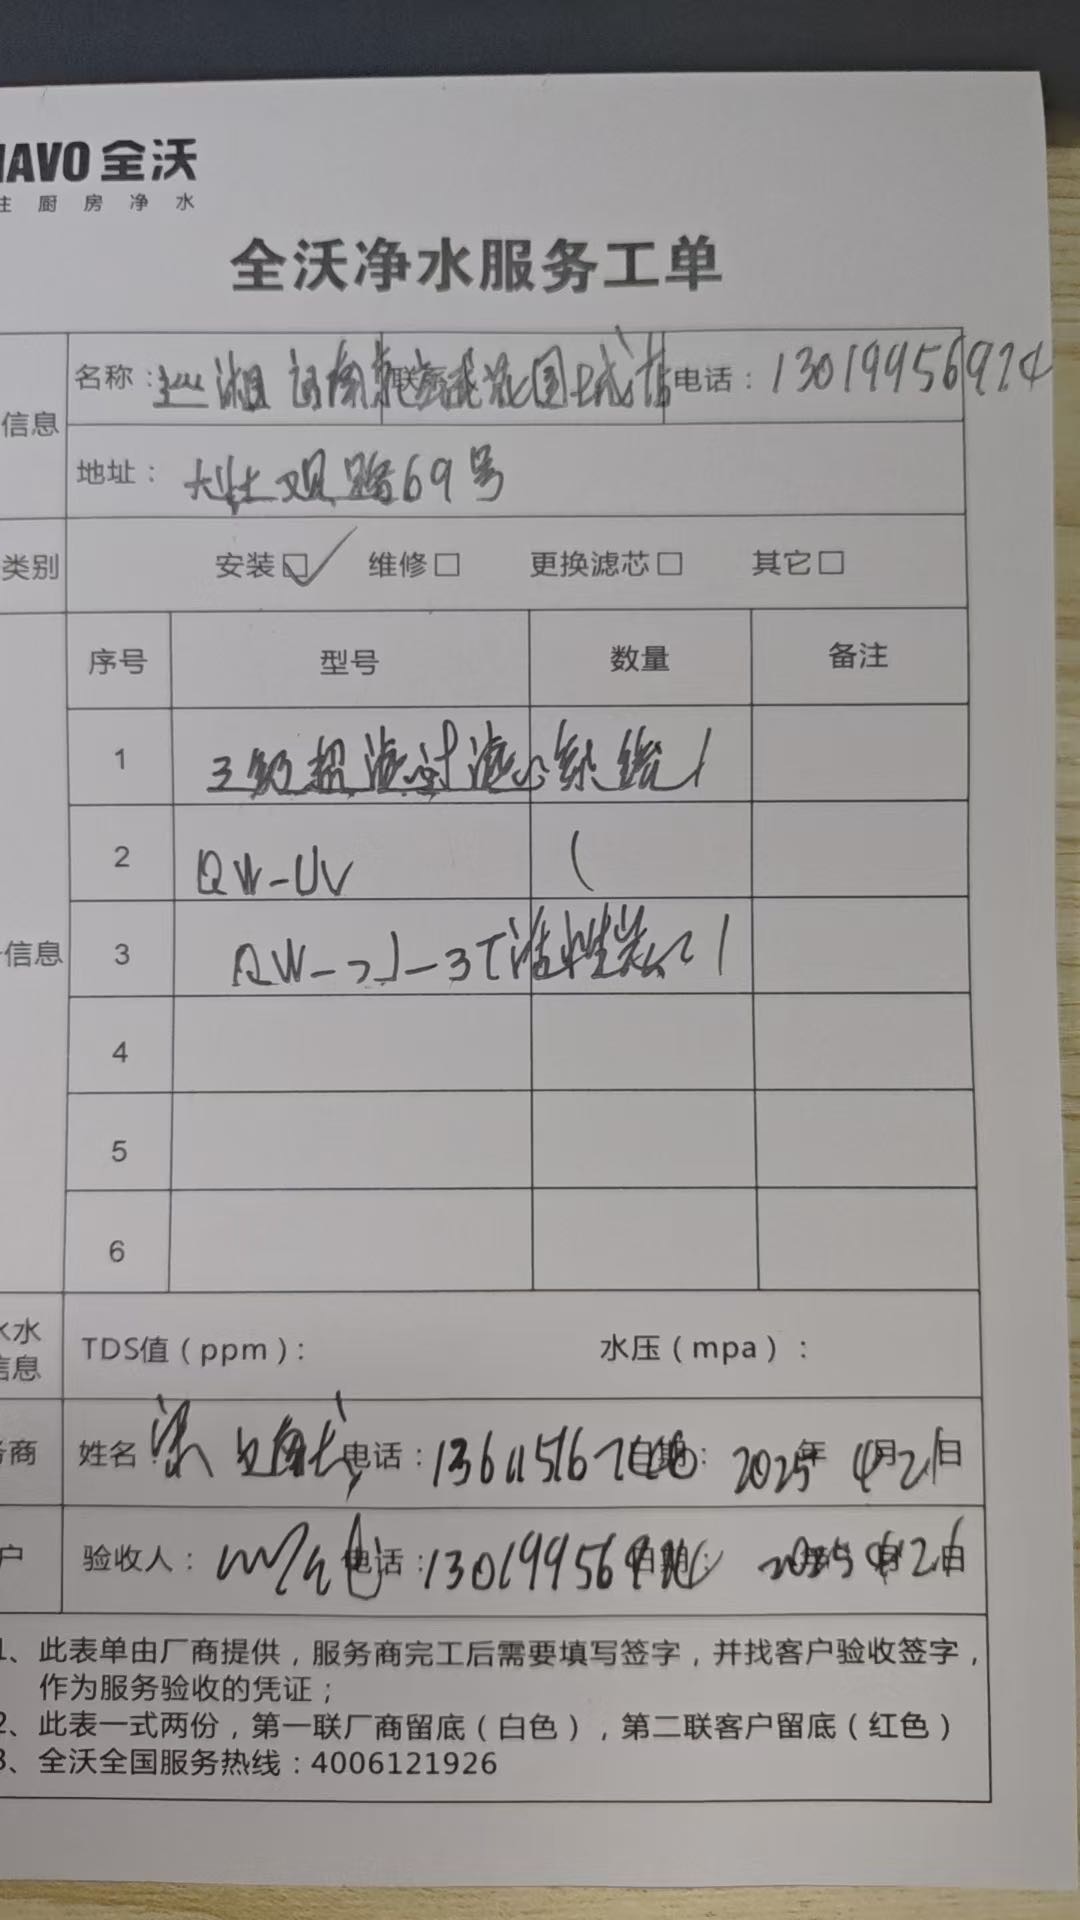 NAVO 全沃
厨房净水
全沃净水服务工单
信息
名称: 联 电话: 13019956974
地址: 大壮观路69号
类别 安装☑ 维修□ 更换滤芯□ 其它□
序号 型号 数量 备注
1 三级超滤过滤 系统 1
2 QW-UV 1
信息 3 QW- -3T活性炭 1
4
5
6
水
信息
TDS值(ppm): 水压(mpa):
商 姓名 梁 电话: 日期: 2025年4月21日
户 验收人: 电话: 日期: 2025年4月21日
1、此表单由厂商提供,服务商完工后需要填写签字,并找客户验收签字,
作为服务验收的凭证;
2、此表一式两份,第一联厂商留底(白色),第二联客户留底(红色)
3、全沃全国服务热线:4006121926